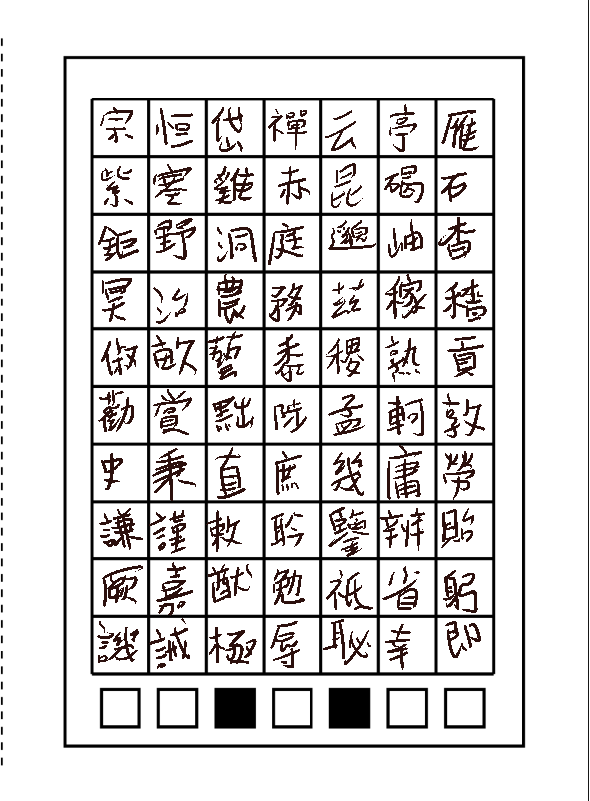 宗恒岱禪云亭雁
紫塞雞赤昆碣石
鉅野洞庭邈岫杳
冥治農務茲稼穡
俶畝藝黍稷熟貢
勸賞黜陟孟軻敦
史秉直庶幾庸勞
謙謹敕聆鑒辨貽
厥嘉猷勉祗省躬
譏誡極辱恥幸即